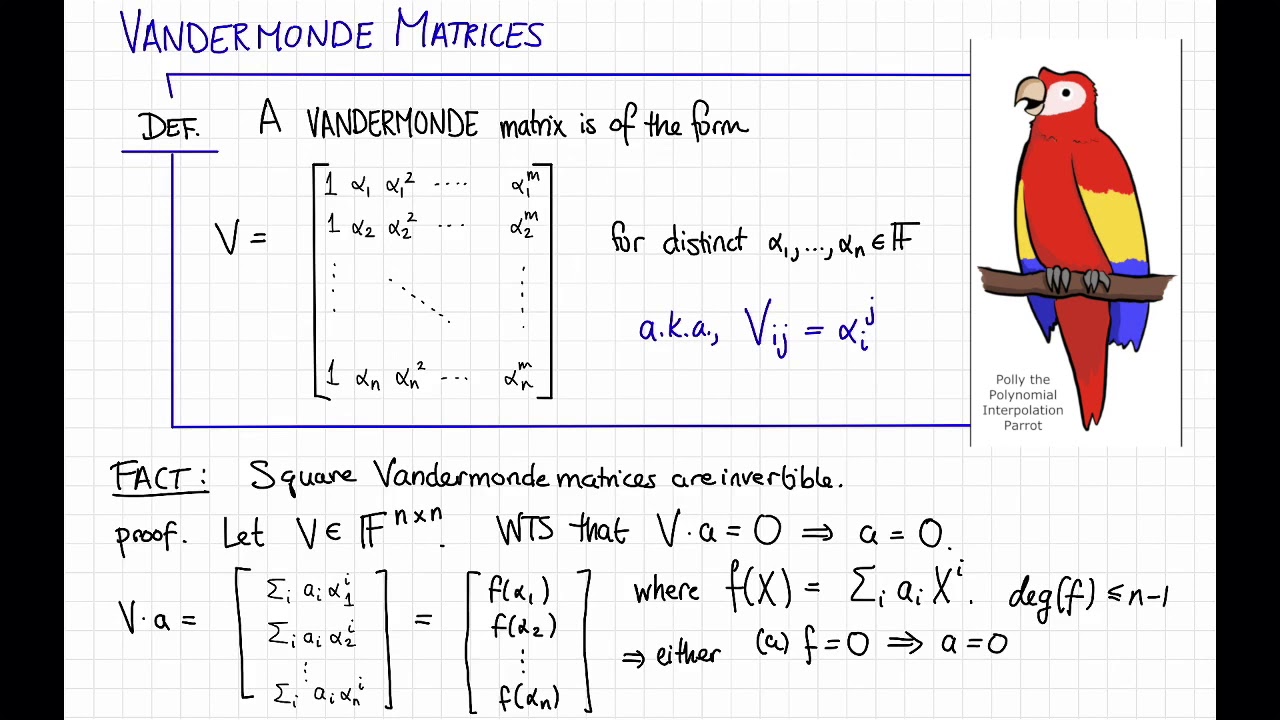 VANDERMONDE MATRICES
DEF. A VANDERMONDE matrix is of the form
V = [ 1 α₁ α₁² ···· α₁ᵐ
1 α₂ α₂² ··· α₂ᵐ
⋮ ⋱ ⋮
1 αₙ αₙ² ··· αₙᵐ ]
for distinct α₁, ..., αₙ ∈ 𝔽
a.k.a., Vᵢⱼ = αᵢʲ
Polly the
Polynomial
Interpolation
Parrot
FACT: Square Vandermonde matrices are invertible.
proof. Let V ∈ 𝔽ⁿˣⁿ. WTS that V·a = 0 ⇒ a = 0.
V·a = [ Σᵢ aᵢ α₁ⁱ
Σᵢ aᵢ α₂ⁱ
⋮
Σᵢ aᵢ αₙⁱ ]
= [ f(α₁)
f(α₂)
⋮
f(αₙ) ]
where f(X) = Σᵢ aᵢ Xⁱ. deg(f) ≤ n-1
⇒ either (a) f = 0 ⇒ a = 0